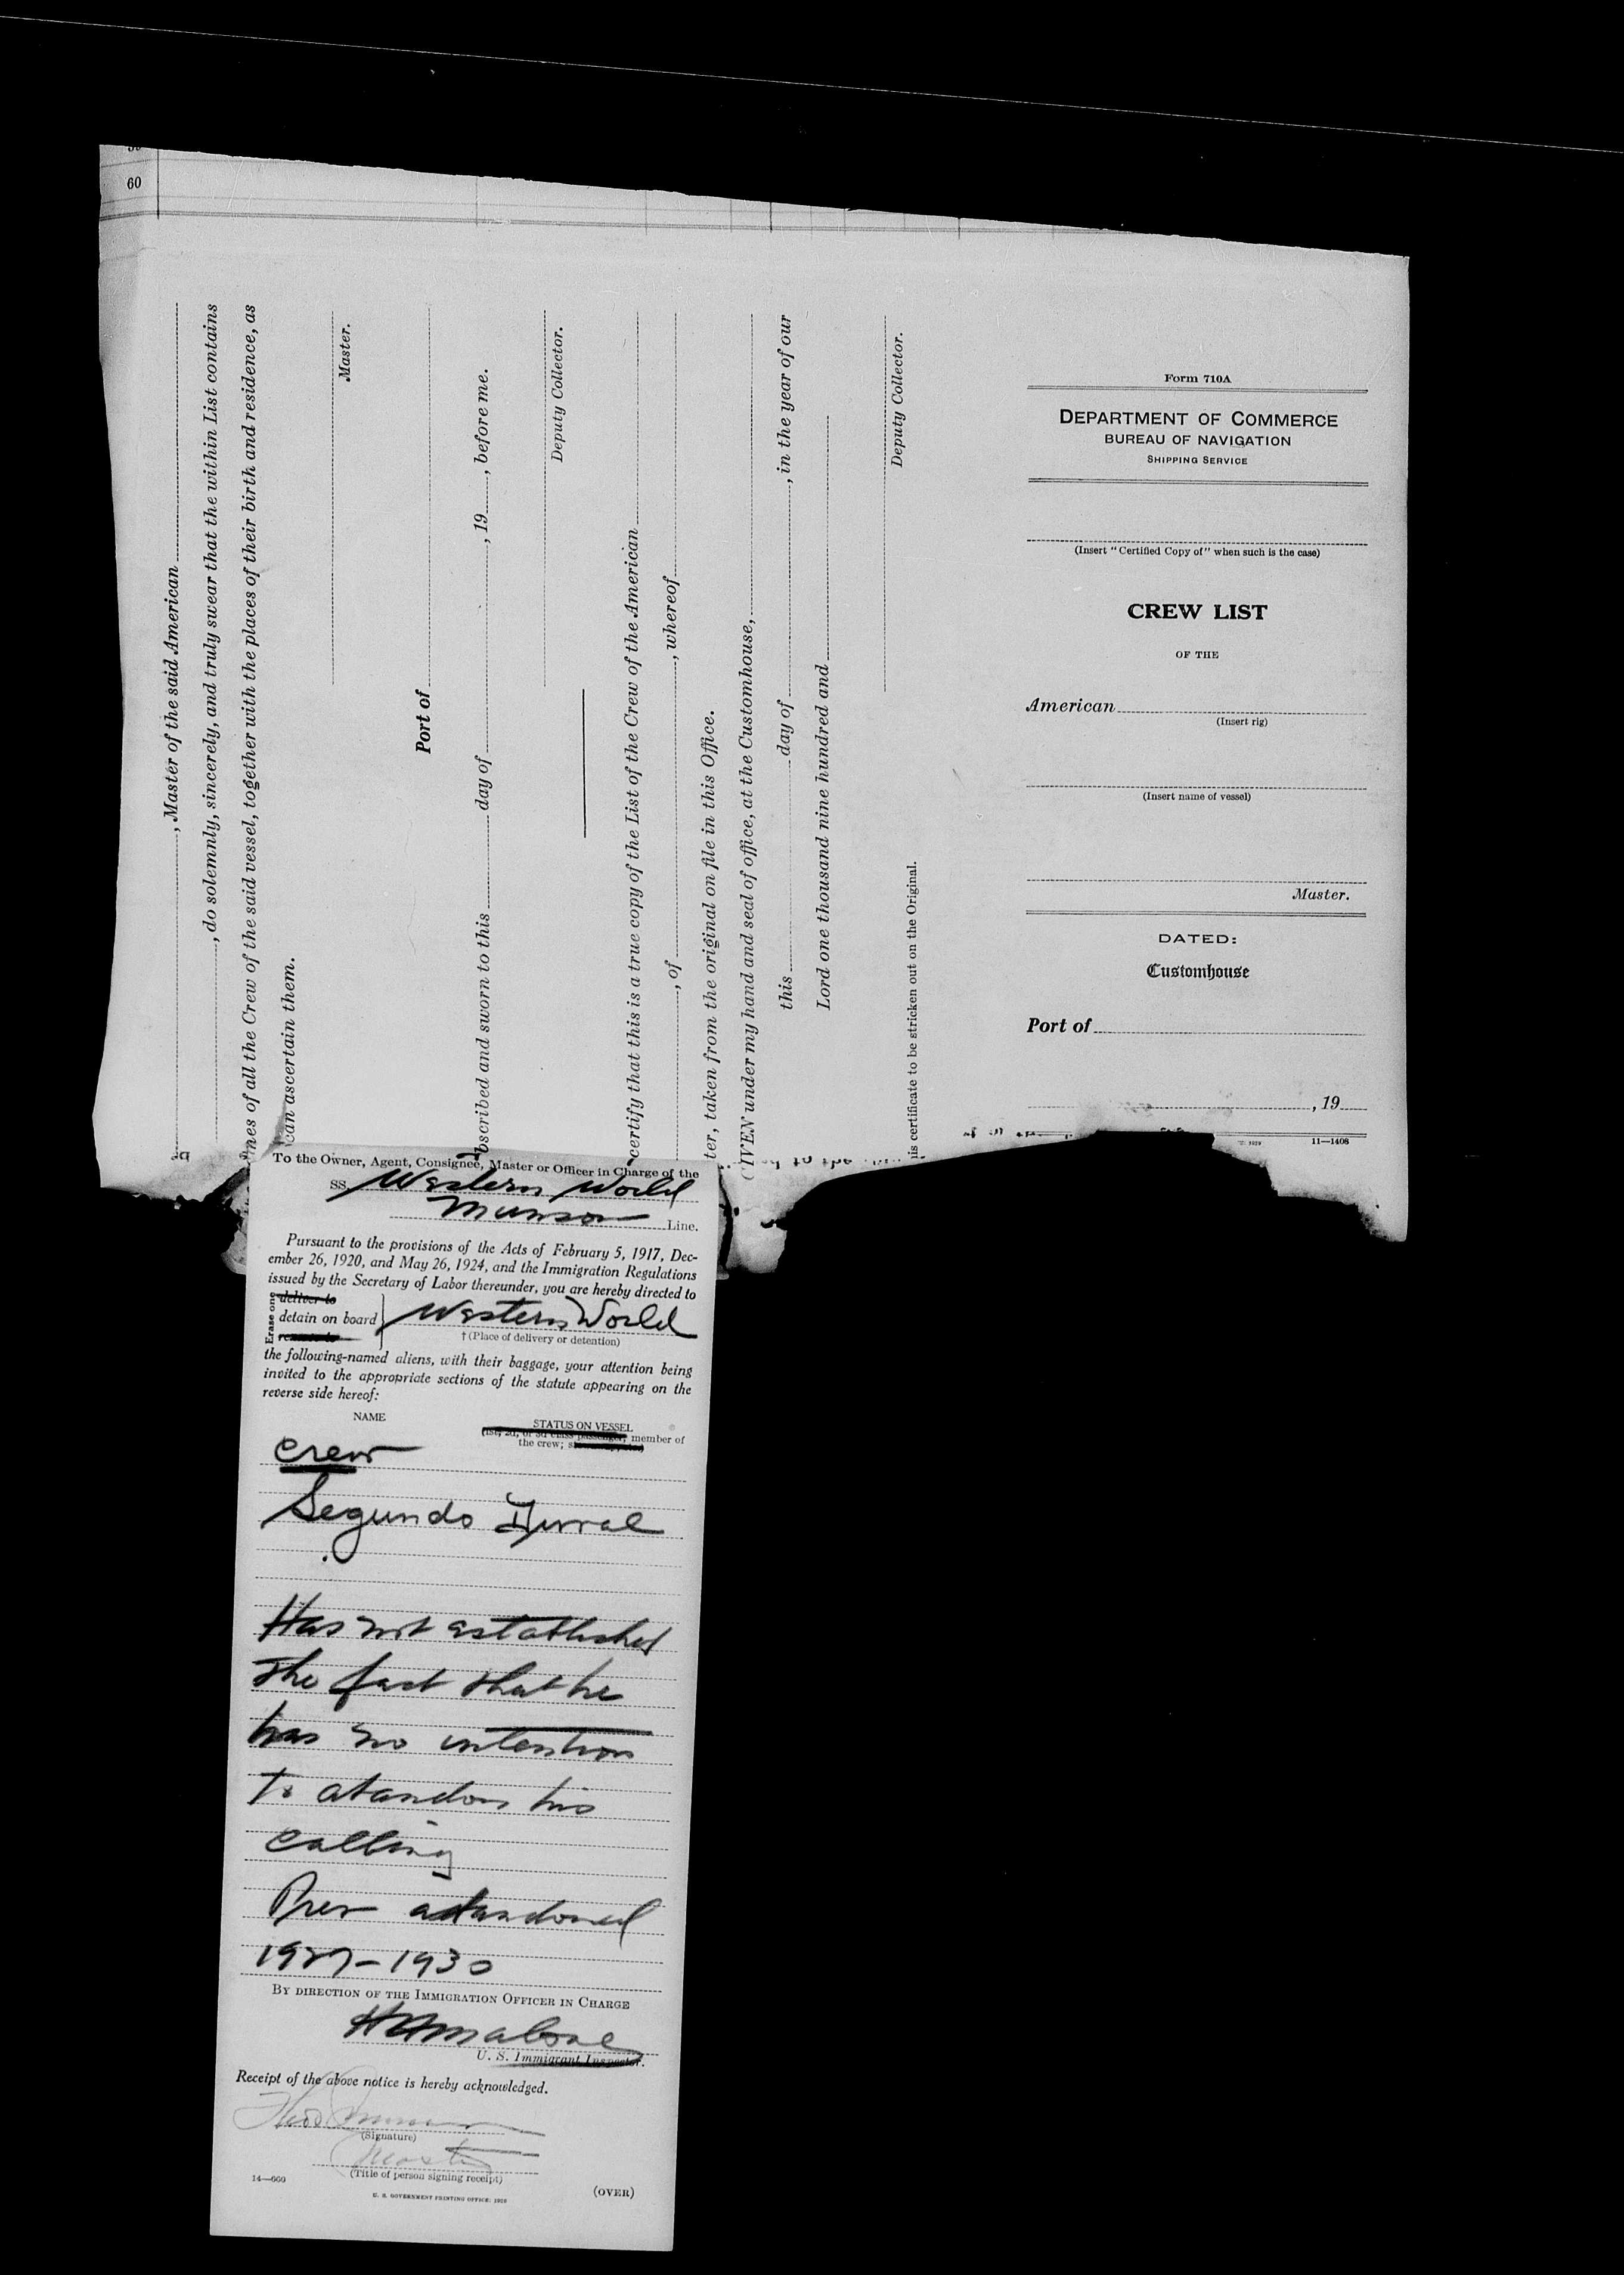 60
, Master of the said American
, do solemnly, sincerely, and truly swear that the within List contains
mes of all the Crew of the said vessel, together with the places of their birth and residence, as
can ascertain them.
Master.
Port of
bscribed and sworn to this day of , 19 , before me.
Deputy Collector.
certify that this is a true copy of the List of the Crew of the American
, of , whereof
ter, taken from the original on file in this Office.
GIVEN under my hand and seal of office, at the Customhouse,
this day of , in the year of our
Lord one thousand nine hundred and
Deputy Collector.
is certificate to be stricken out on the Original.
Form 710A
DEPARTMENT OF COMMERCE
BUREAU OF NAVIGATION
SHIPPING SERVICE
(Insert "Certified Copy of" when such is the case)
CREW LIST
OF THE
American
(Insert rig)
(Insert name of vessel)
Master.
DATED:
Customhouse
Port of
, 19
11—1408
To the Owner, Agent, Consignee, Master or Officer in Charge of the
SS. Western World
Munson Line.
Pursuant to the provisions of the Acts of February 5, 1917, Dec-
ember 26, 1920, and May 26, 1924, and the Immigration Regulations
issued by the Secretary of Labor thereunder, you are hereby directed to
Erase one
deliver to
detain on board Western World
remove to
† (Place of delivery or detention)
the following-named aliens, with their baggage, your attention being
invited to the appropriate sections of the statute appearing on the
reverse side hereof:
NAME STATUS ON VESSEL
(1st, 2d, or 3d class passenger, member of
the crew;
Crew
Segundo
Has not established
the fact that he
has no intention
to abandon his
calling
Prev abandoned
1927-1930
BY DIRECTION OF THE IMMIGRATION OFFICER IN CHARGE
Malone
U. S. Immigrant Inspector.
Receipt of the above notice is hereby acknowledged.
(Signature)
Master
(Title of person signing receipt)
14—666
U. S. GOVERNMENT PRINTING OFFICE: 1929
(OVER)